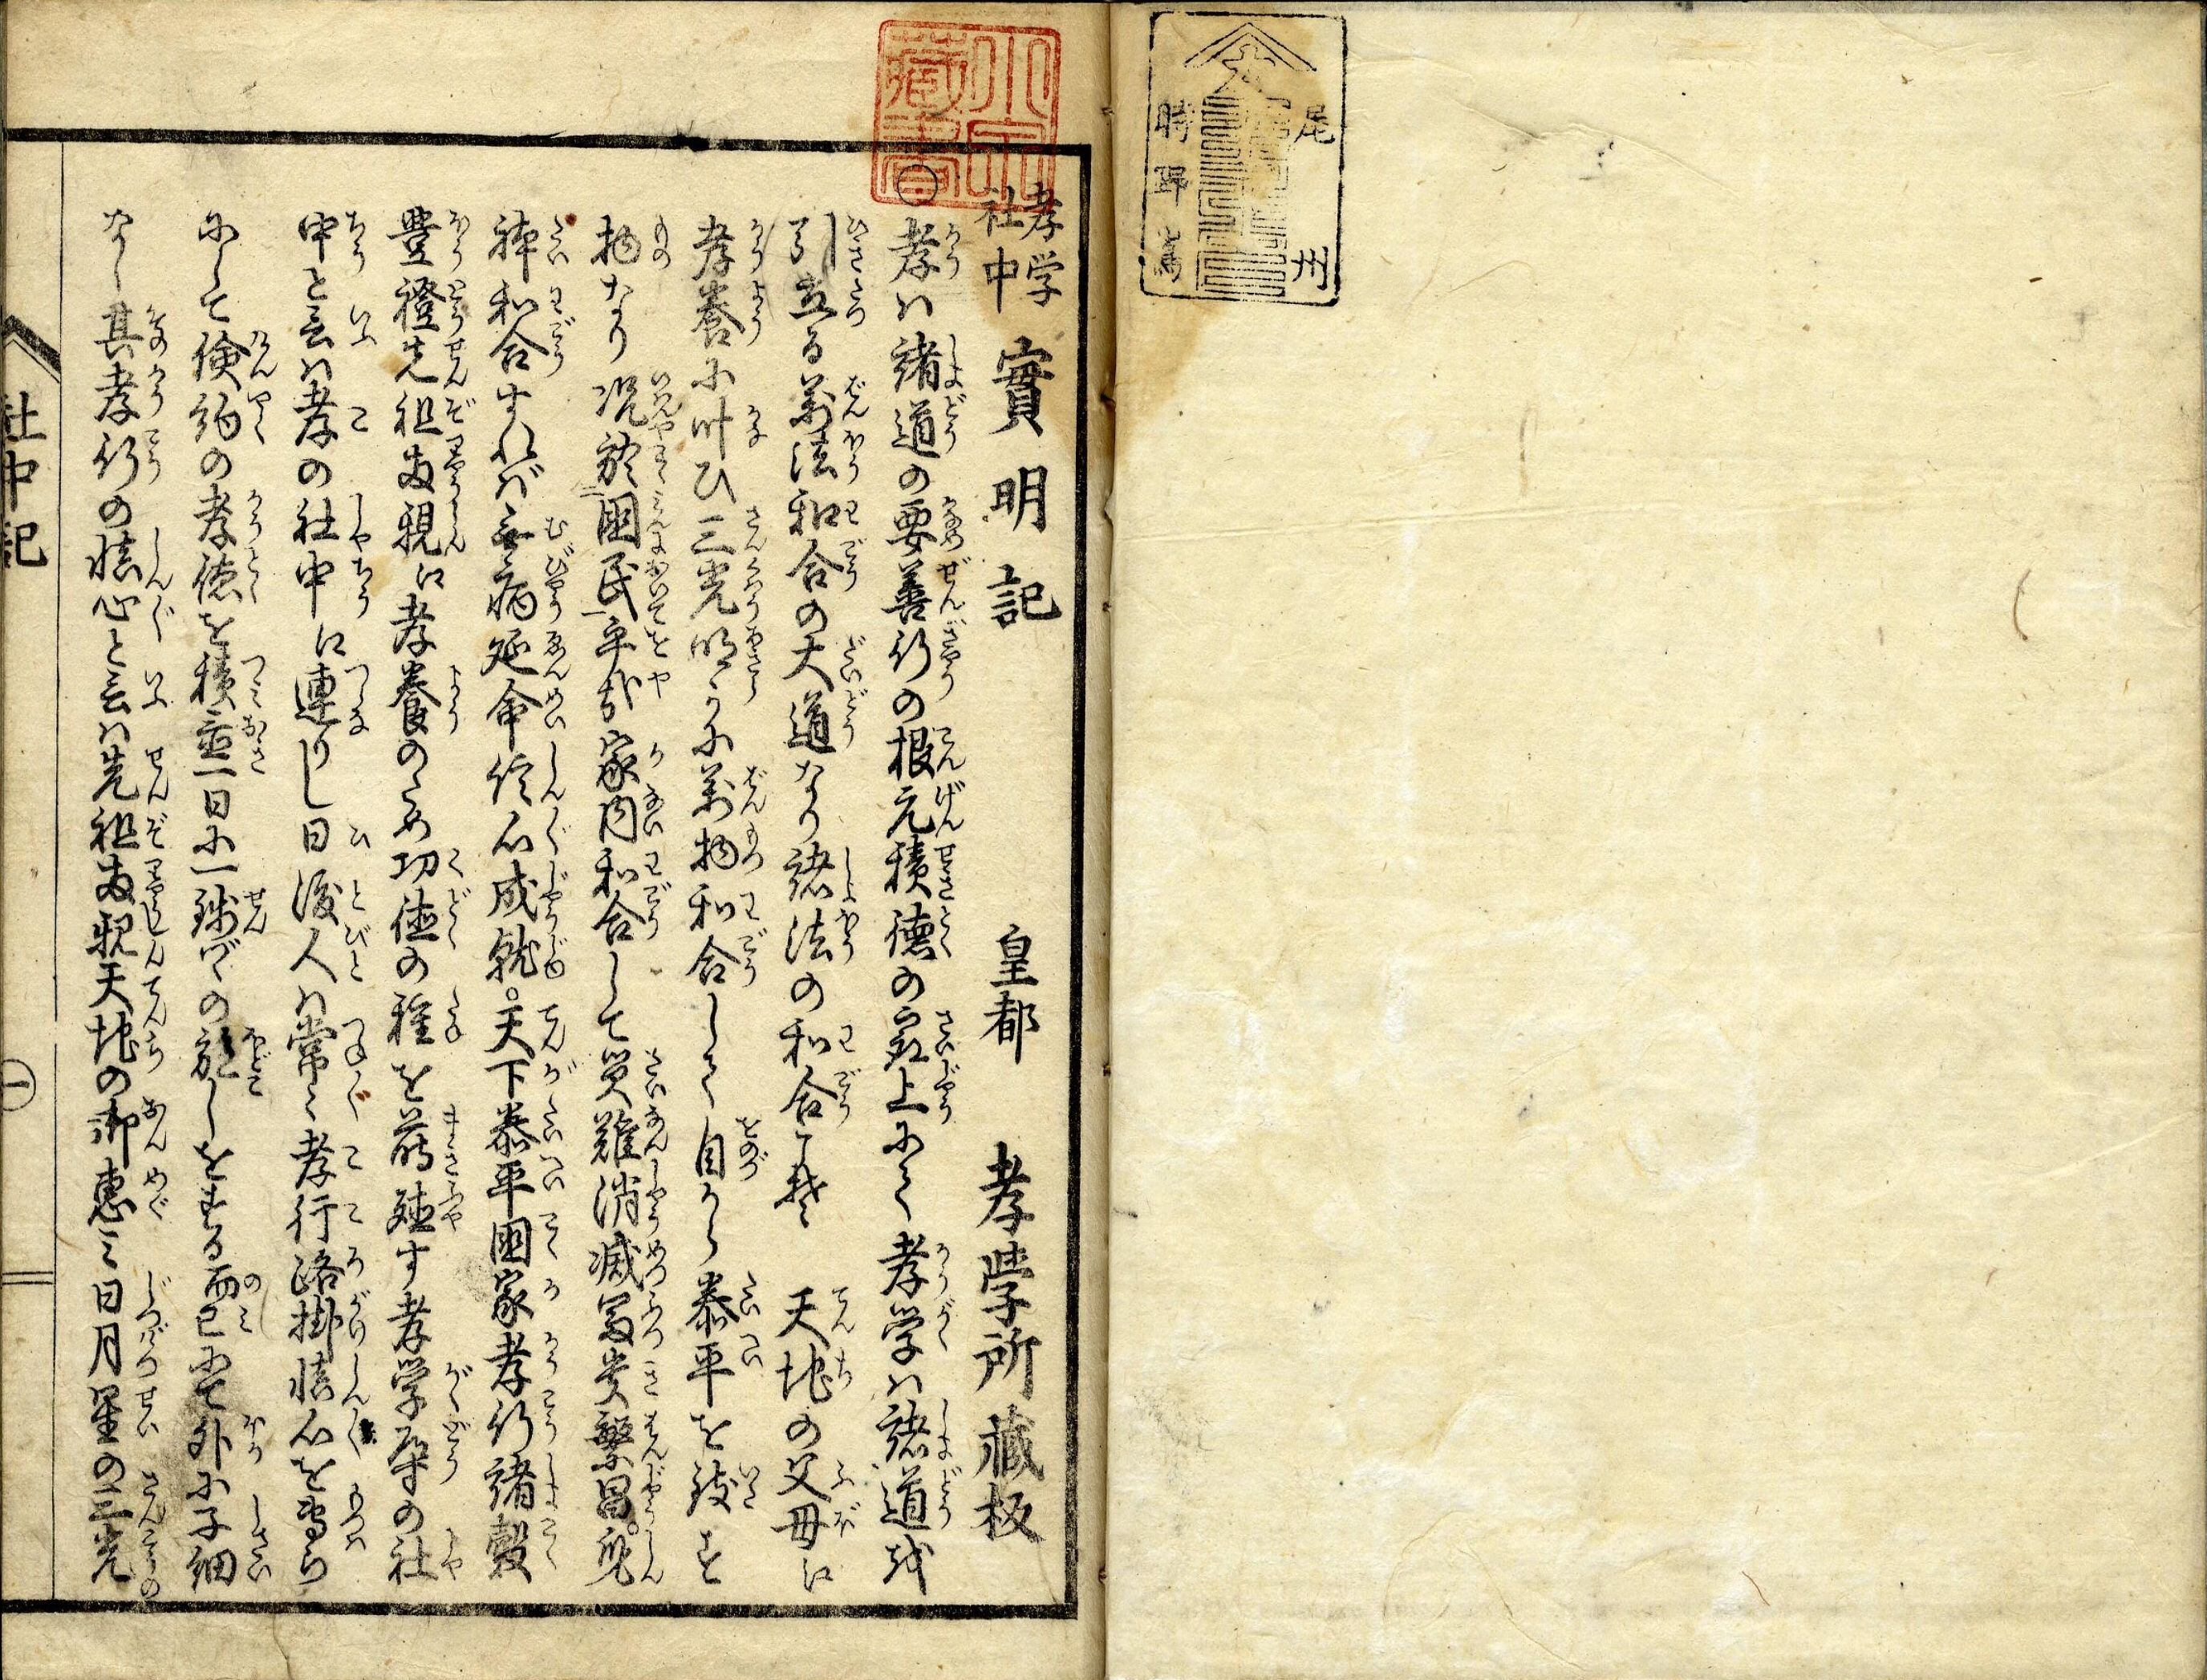 尾州
時 歸
小 藏書
孝学社中 實明記 皇都 孝學所藏板
○孝ハ諸道の要善行の根元積徳の最上にて孝学ハ諸道を
引立る萬法和合の大道なり諸法の和合こそ 天地の父母に
孝養に叶ひ三光明らかに萬物和合して自から泰平を致す
物なり况於国民乎哉家内和合して災難消滅冨貴繁昌。身
体和合すれば無病延命信心成就。天下泰平国家孝行諸穀
豊穣先祖両親に孝養のため功徳の種を蒔殖す孝学孝の社
中と云ハ孝の社中に連りし日後人ハ常々孝行路掛信心を専ら
にして倹約の孝徳を積立一日に一銭づゝの施しをする而已にて外に子細
なし其孝行の信心と云ハ先祖両親天地の御恵ミ日月星の三光
社中記 一